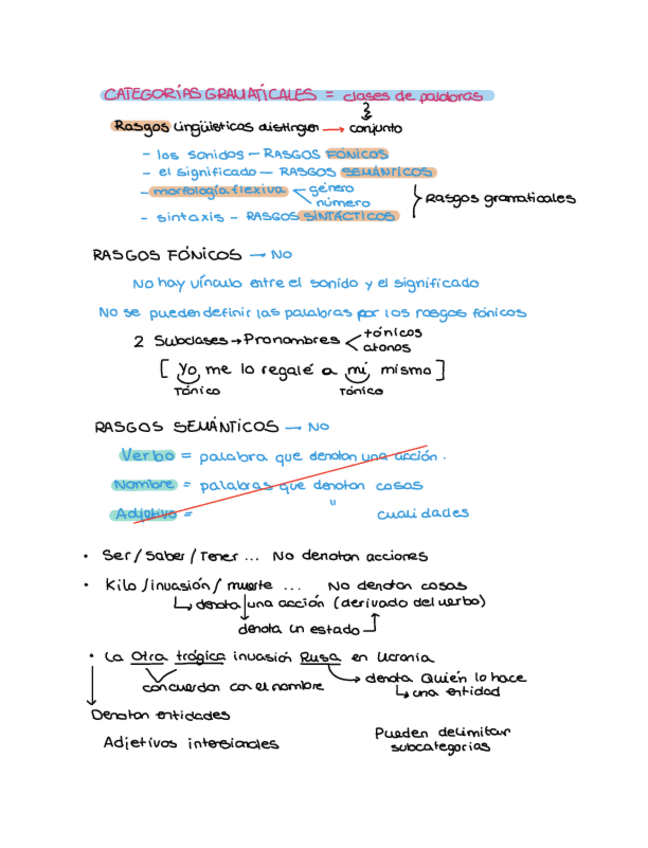 CATEGORÍAS GRAMATÍCALES = clases de palabras
Rasgos lingüísticos distinguen → conjunto
- los sonidos — RASGOS FÓNICOS
- el significado — RASGOS SEMÁNTICOS
- morfología flexiva género
número
Rasgos gramaticales
- sintaxis - RASGOS SINTÁCTICOS
RASGOS FÓNICOS → NO
No hay vínculo entre el sonido y el significado
No se pueden definir las palabras por los rasgos fónicos
2 Subclases → Pronombres < tónicos
atonos
[ Yo me lo regalé a mí mismo ]
Tónico Tónico
RASGOS SEMÁNTICOS — NO
Verbo = palabra que denotan una acción.
Nombre = palabras que denoton cosas
Adjetivo = " cualidades
• Ser / Saber / Tener ... No denotan acciones
• Kilo / invasión / muerte ... No denotan cosas
denota una acción (derivado del verbo)
denota un estado
• La Otra trágica invasión Rusa en Ucrania
concuerdan con el nombre
denota Quién lo hace
una entidad
Denotan entidades
Adjetivos intersianales
Pueden delimitar
subcategorías